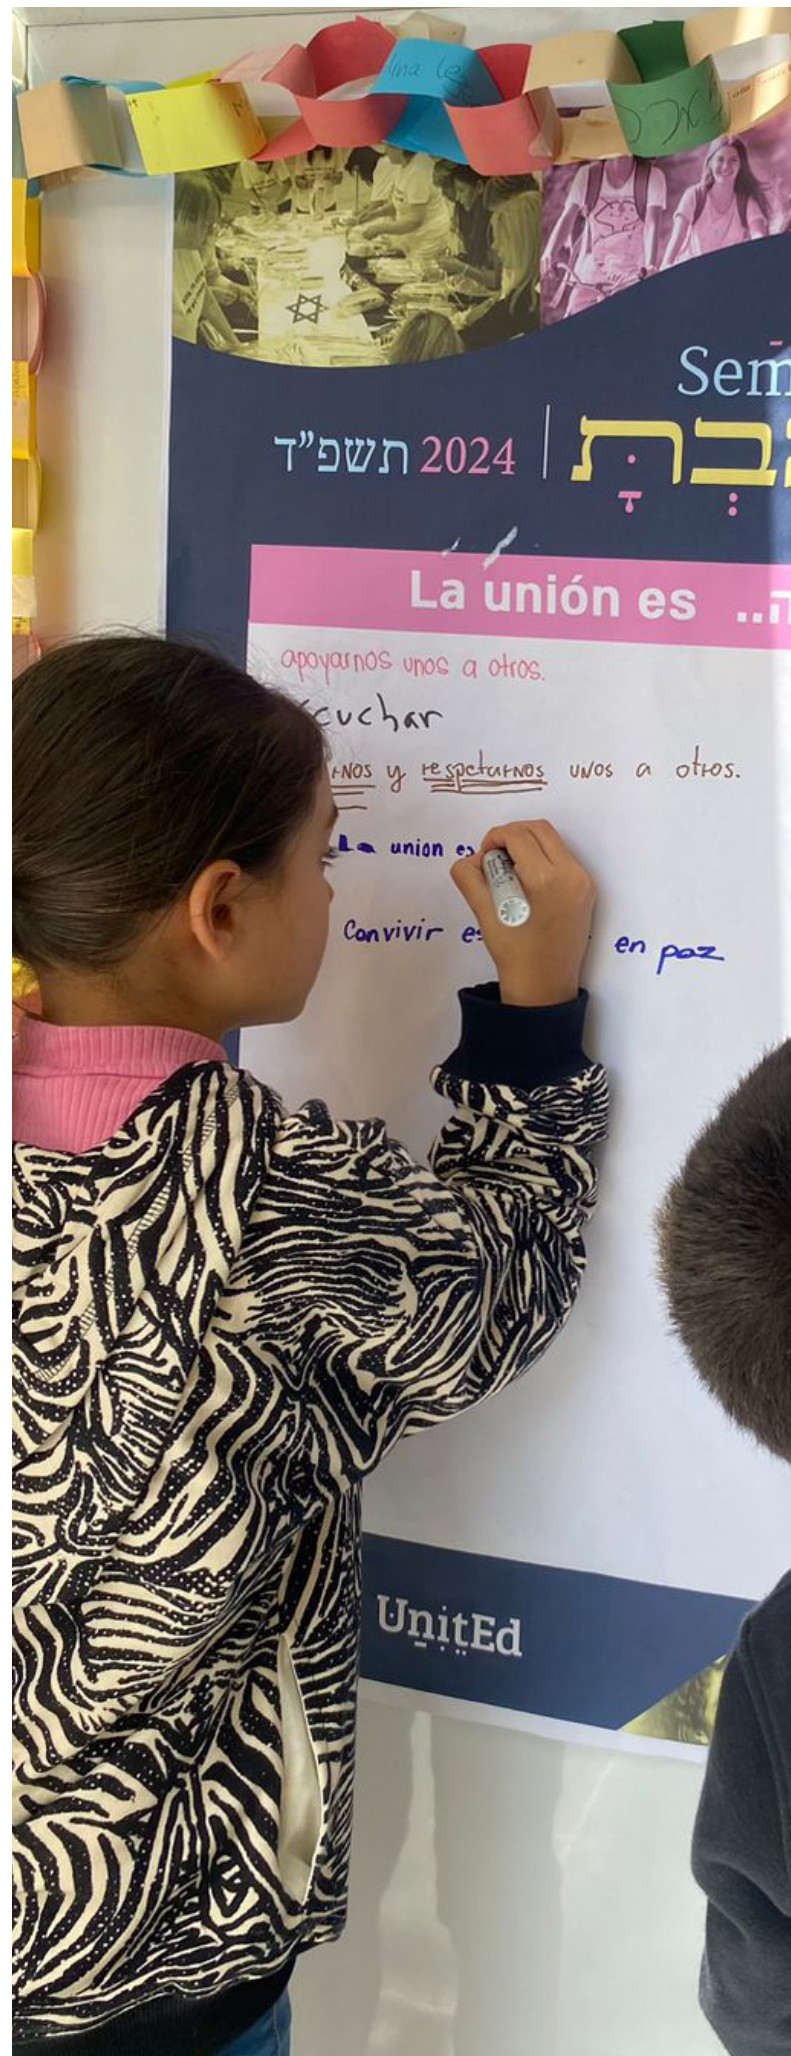 lina
Sem
תשפ"ד 2024
La unión es ..ה
apoyarnos unos a otros.
cuchar
rnos y respetarnos unos a otros.
La union es
Convivir es en paz
UnitEd